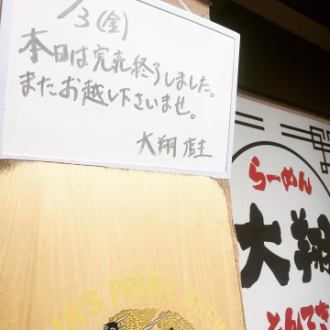 /3(金)
本日は完売終了しました。
またお越し下さいませ。
大翔 店主
らーめん
大翔